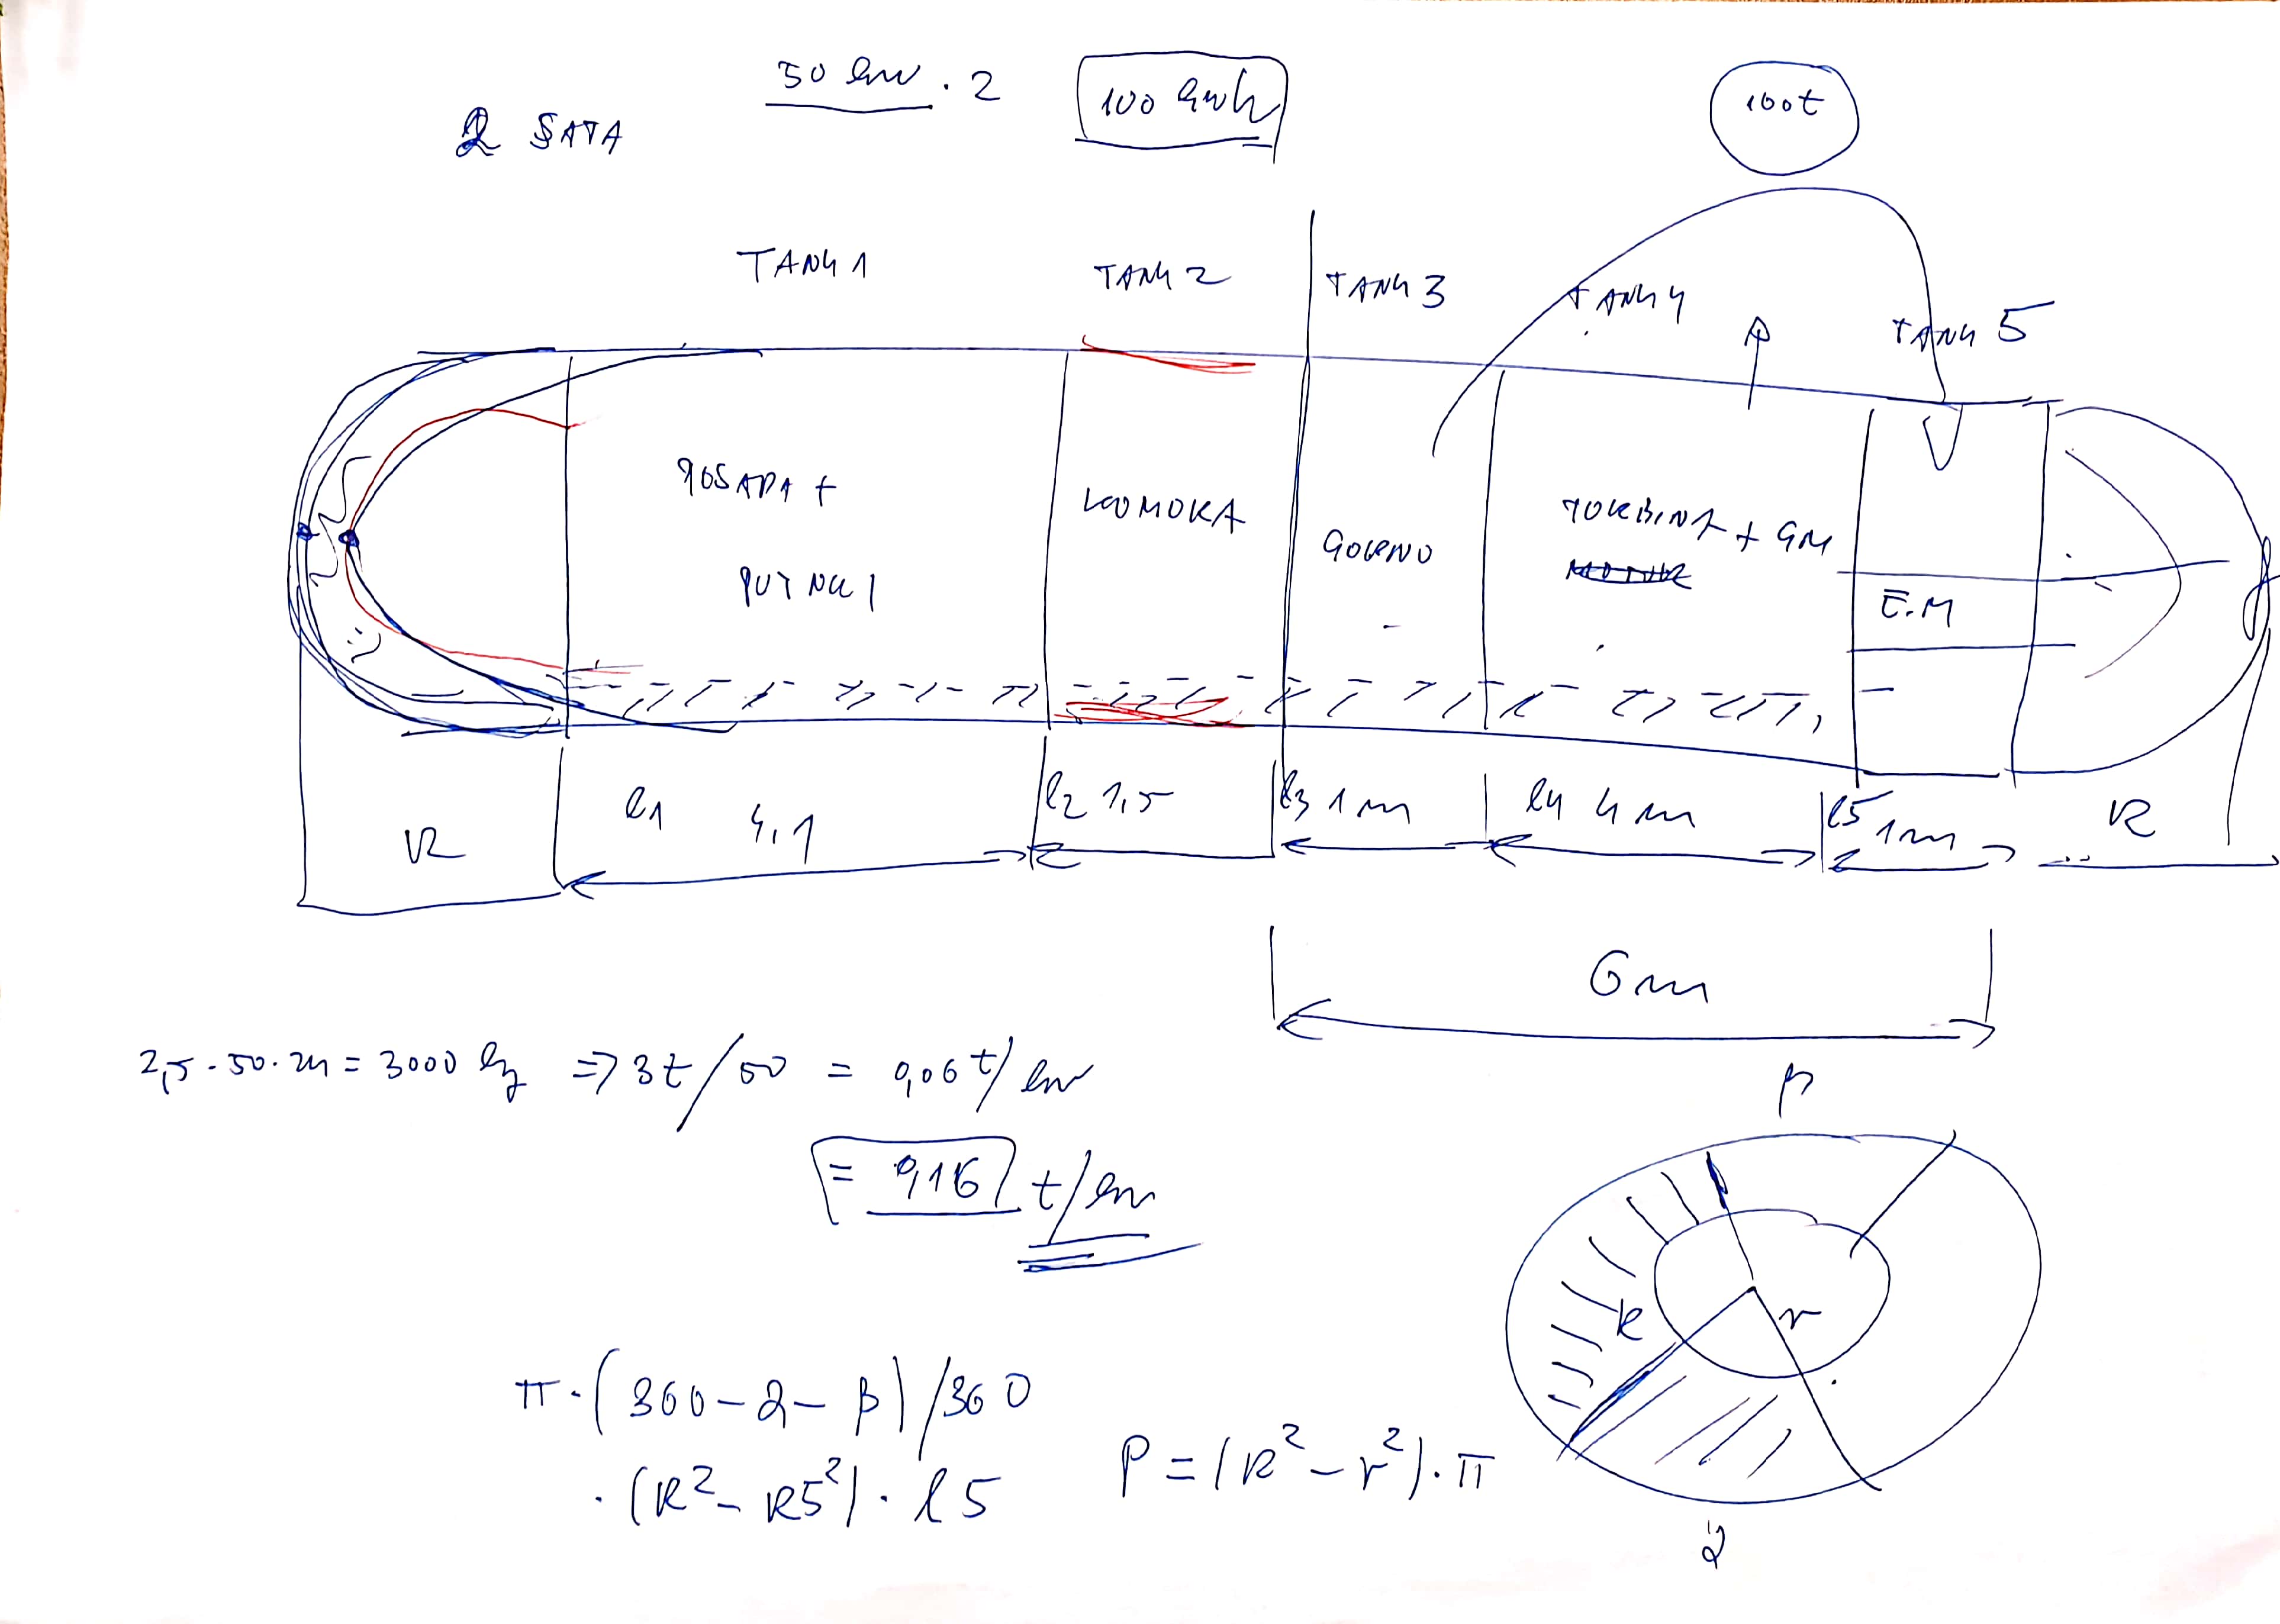 50 kW . 2
100 kWh
100t
2 SATA
TANK 1
TANK 2
TANK 3
TANK 4
TANK 5
POSADA +
PUTNICI
KOMORA
GORIVO
TURBINA + GM
E.M
R
l1 4,1
l2 1,5
l3 1m
l4 4m
l5 1m
R
6m
2,5 · 50 · 24 = 3000 kg => 3t/50 = 0,06 t/kW
= 0,16 t/kW
β
R
r
π · (360 - α - β)/360
· (R² - R5²) · l5
P = (R² - r²) · π
α